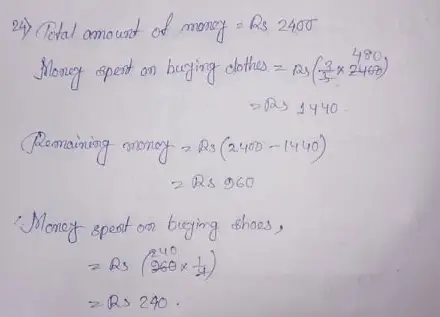 24) Total amount of money = Rs 2400
Money spent on buying clothes = Rs (3/5 × 2400) 480
= Rs 1440.
Remaining money = Rs (2400 - 1440)
= Rs 960
Money spent on buying shoes,
= Rs (960 × 1/4) 240
= Rs 240.